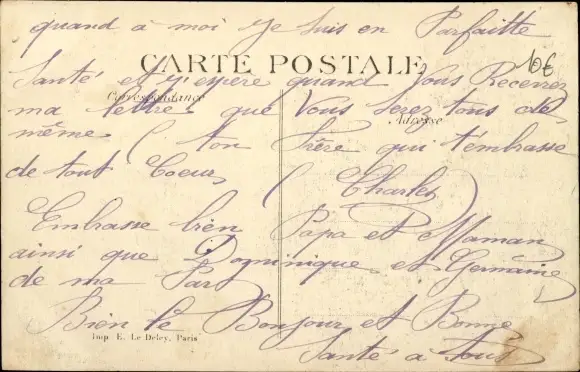 quand à moi je suis en Parfaitte
10€
CARTE POSTALE
Santé et j'espère quand Vous Recevrez
Correspondance
ma lettre que Vous serez tous de
Adresse
même ( ton Frère qui t'embrasse
de tout Coeur ( Charles
Embrasse bien Papa et Maman
ainsi que Dominique et Germaine
de ma Part
Bien le Bonjour et Bonne
Imp. E. Le Deley, Paris
Santé à Tous